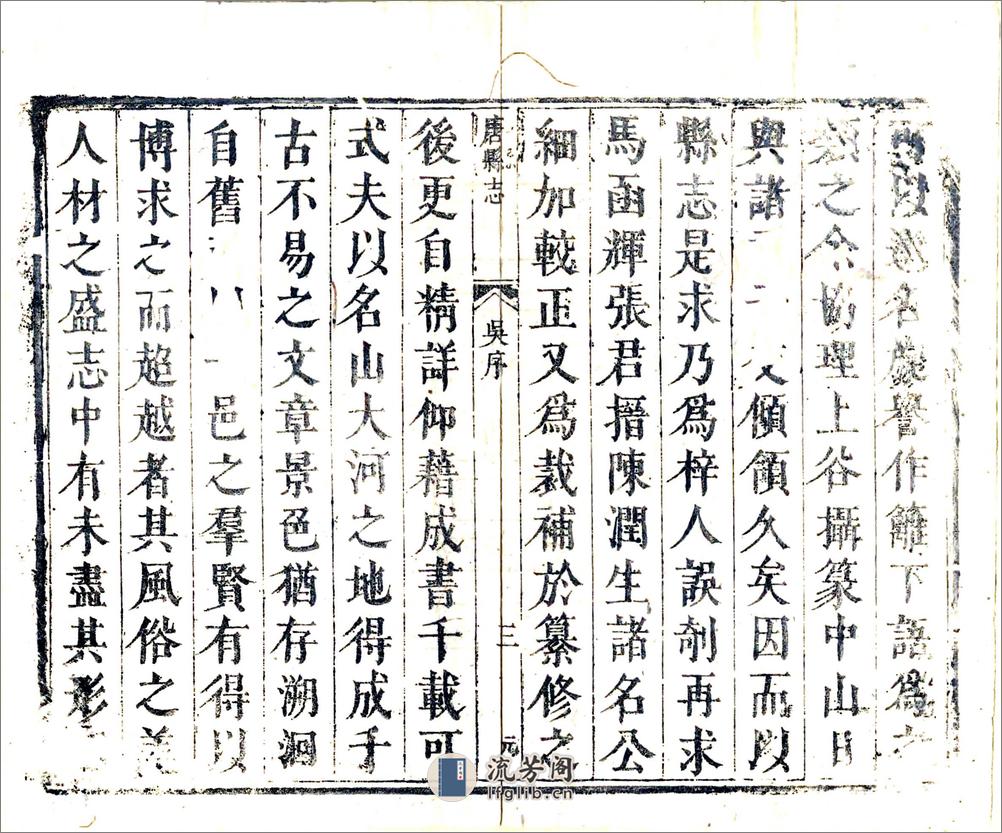 海名巖譽作籬下語爲之
之令協理上谷攝篆中山日
與諸傾領久矣因而以
縣志是求乃爲梓人誤刳再求
馬函輝張君搢陳潤生諸名公
細加較正又爲裁補於纂修之
唐縣志 吳序 三 元
後更自精詳仰藉成書千載可
式夫以名山大河之地得成千
古不易之文章景色猶存溯洄
自舊邑之羣賢有得以
博求之而超越者其風俗之
人材之盛志中有未盡其形
流芳阁
lfglib.cn